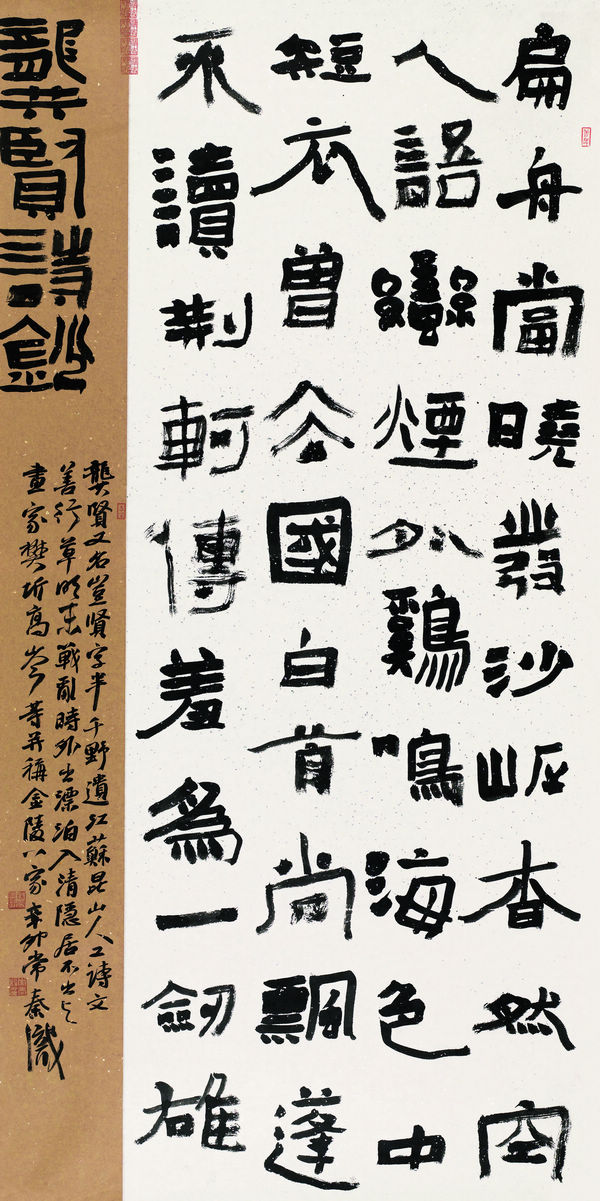 扁舟當曉發沙岸杳然空
人語蠻煙外鷄鳴海色中
短衣曾去國白首尚飄蓬
不讀荆軻傳羞爲一劒雄
龔賢詩鈔
龔賢又名豈賢字半千野遺江蘇昆山人工詩文
善行草明末戰亂時外出漂泊入清隱居不出与
畫家樊圻高岑等并稱金陵八家辛卯常秦識